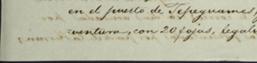 en el puesto de Tepeguames,
ventura, con 20 fojas, legali